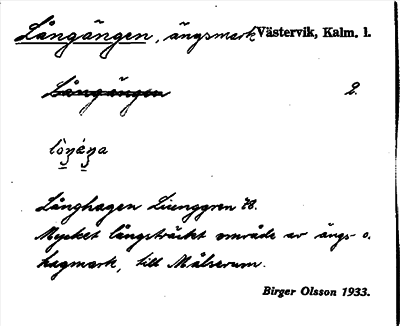 Långängen, ängsmark Västervik, Kalm. l.
Långängen 2.
Långhagen Liunggren 78.
Mycket långsträckt område av ängs- o.
hagmark, till Målserum.
Birger Olsson 1933.